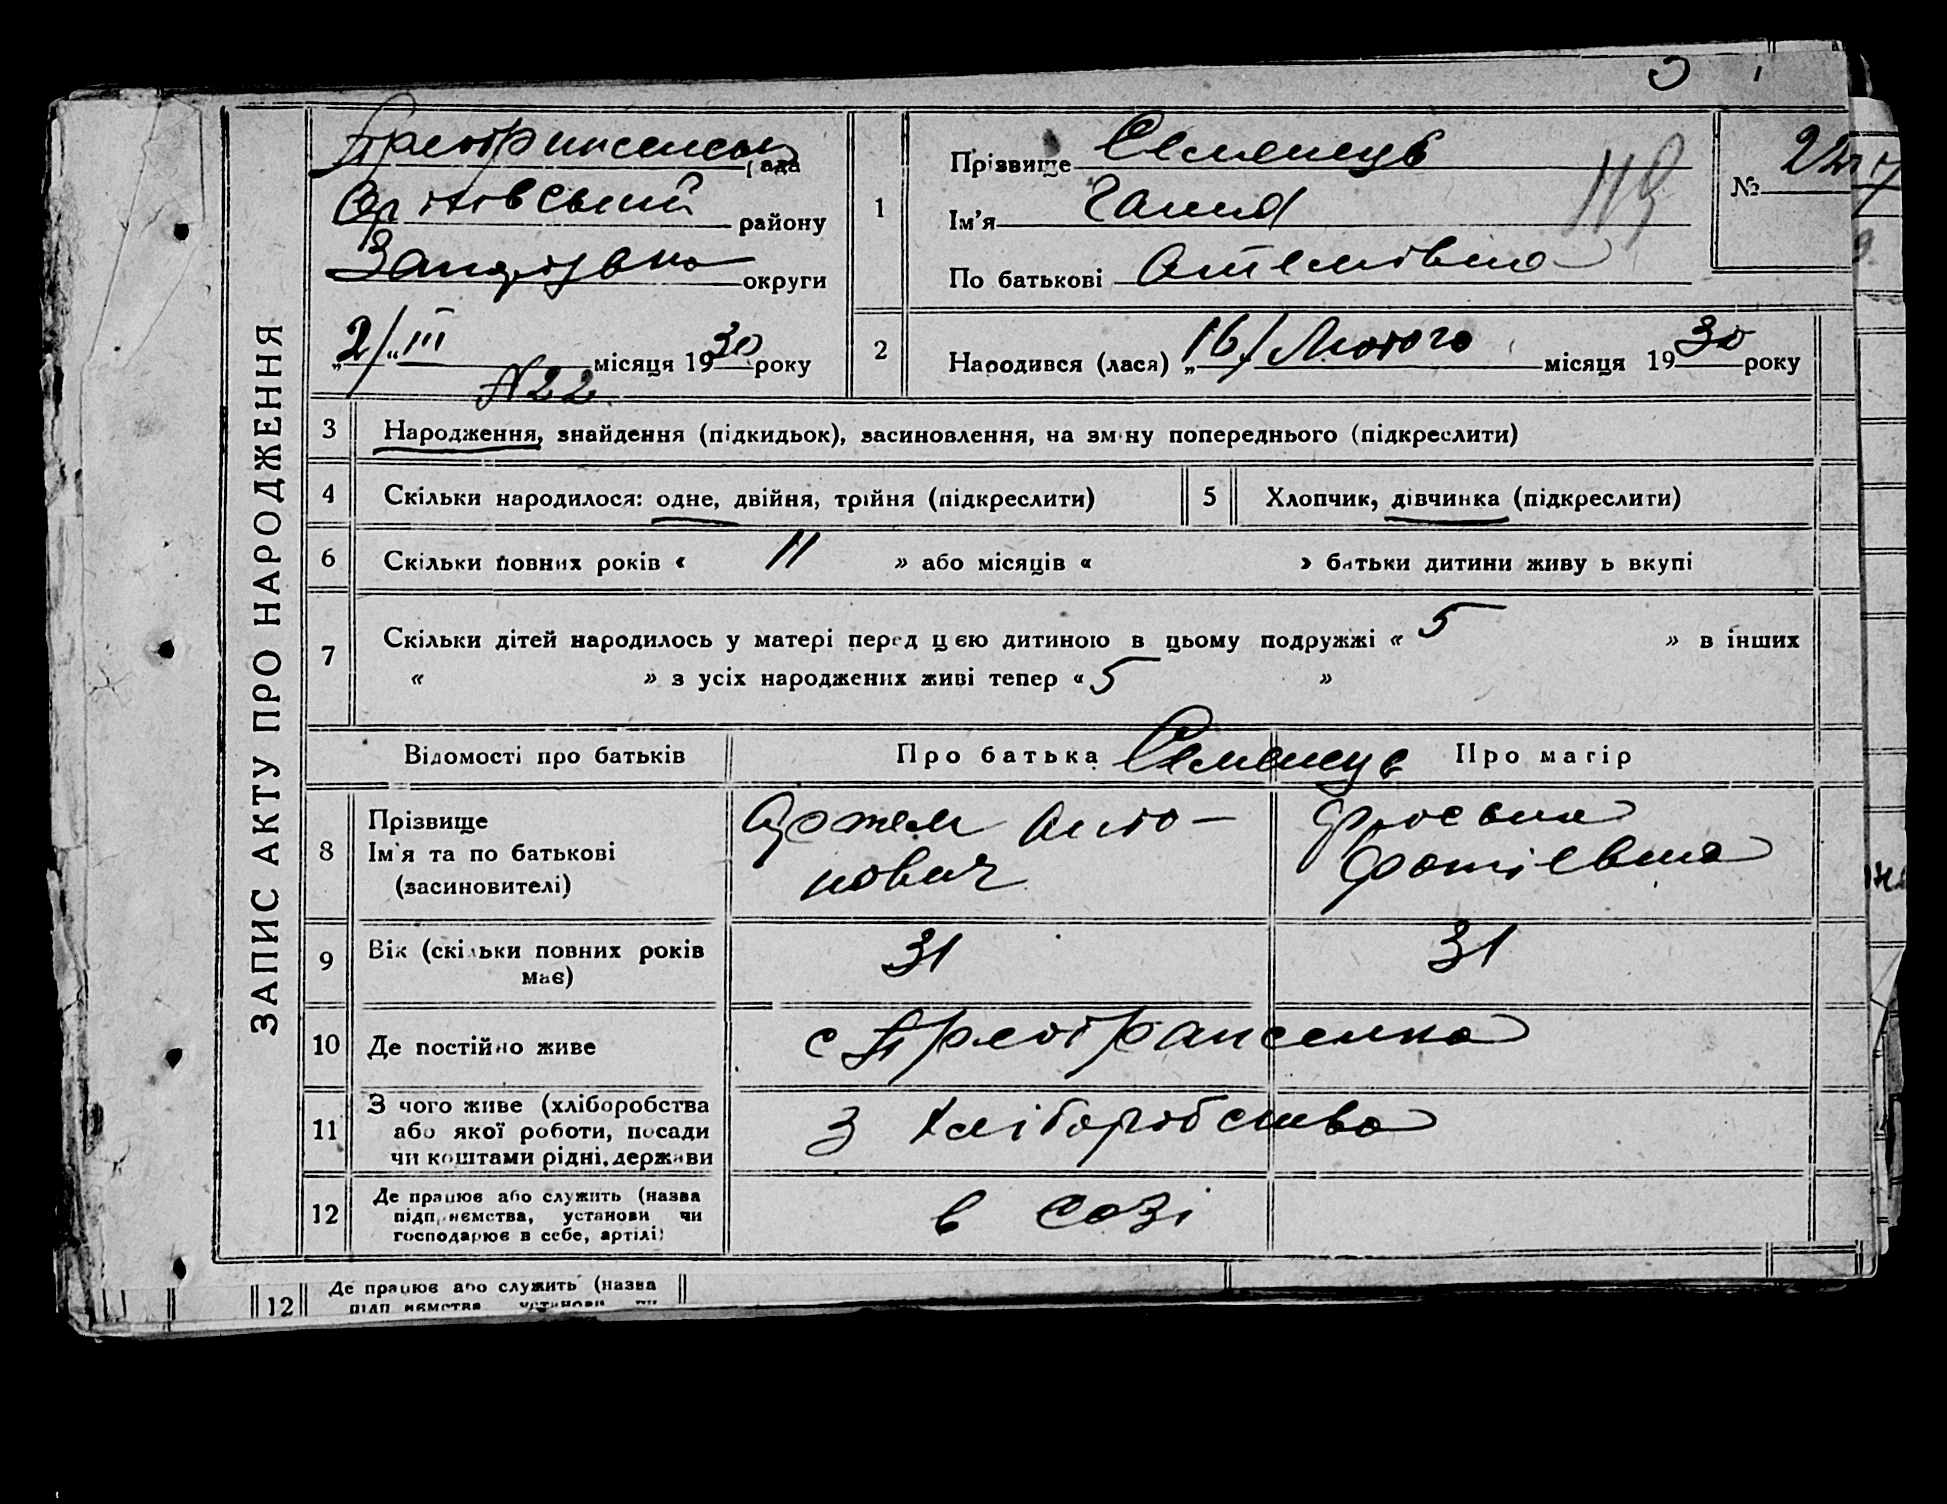 ЗАПИС АКТУ ПРО НАРОДЖЕННЯ
рада
Оріхівський району
Запоріжна округи
"2/" III місяця 1930 року
N22.
1
Прізвище Семенець
Ім'я Ганна
По батькові Артемівна
№ 22
2
Народився (лася) "16/" Лютого місяця 1930 року
3 Народження, знайдення (підкидьок), засиновлення, на зміну попереднього (підкреслити)
4 Скільки народилося: одне, двійня, трійня (підкреслити)
5 Хлопчик, дівчинка (підкреслити)
6 Скільки повних років « 11 » або місяців « » батьки дитини живуть вкупі
7 Скільки дітей народилось у матері перед цією дитиною в цьому подружжі « 5 » в інших
« » з усіх народжених живі тепер « 5 »
Відомості про батьків
Про батька Семенець Про матір
8 Прізвище
Ім'я та по батькові
(засиновителі)
Артем Анто-
нович
Фотієвна
9 Вік (скільки повних років
має)
31 31
10 Де постійно живе
с
11 З чого живе (хліборобства
або якої роботи, посади
чи коштами рідні, держави
З хліборобства
12 Де працює або служить (назва
підприємства, установи чи
господарює в себе, артілі)
в созі
12 Де працює або служить (назва